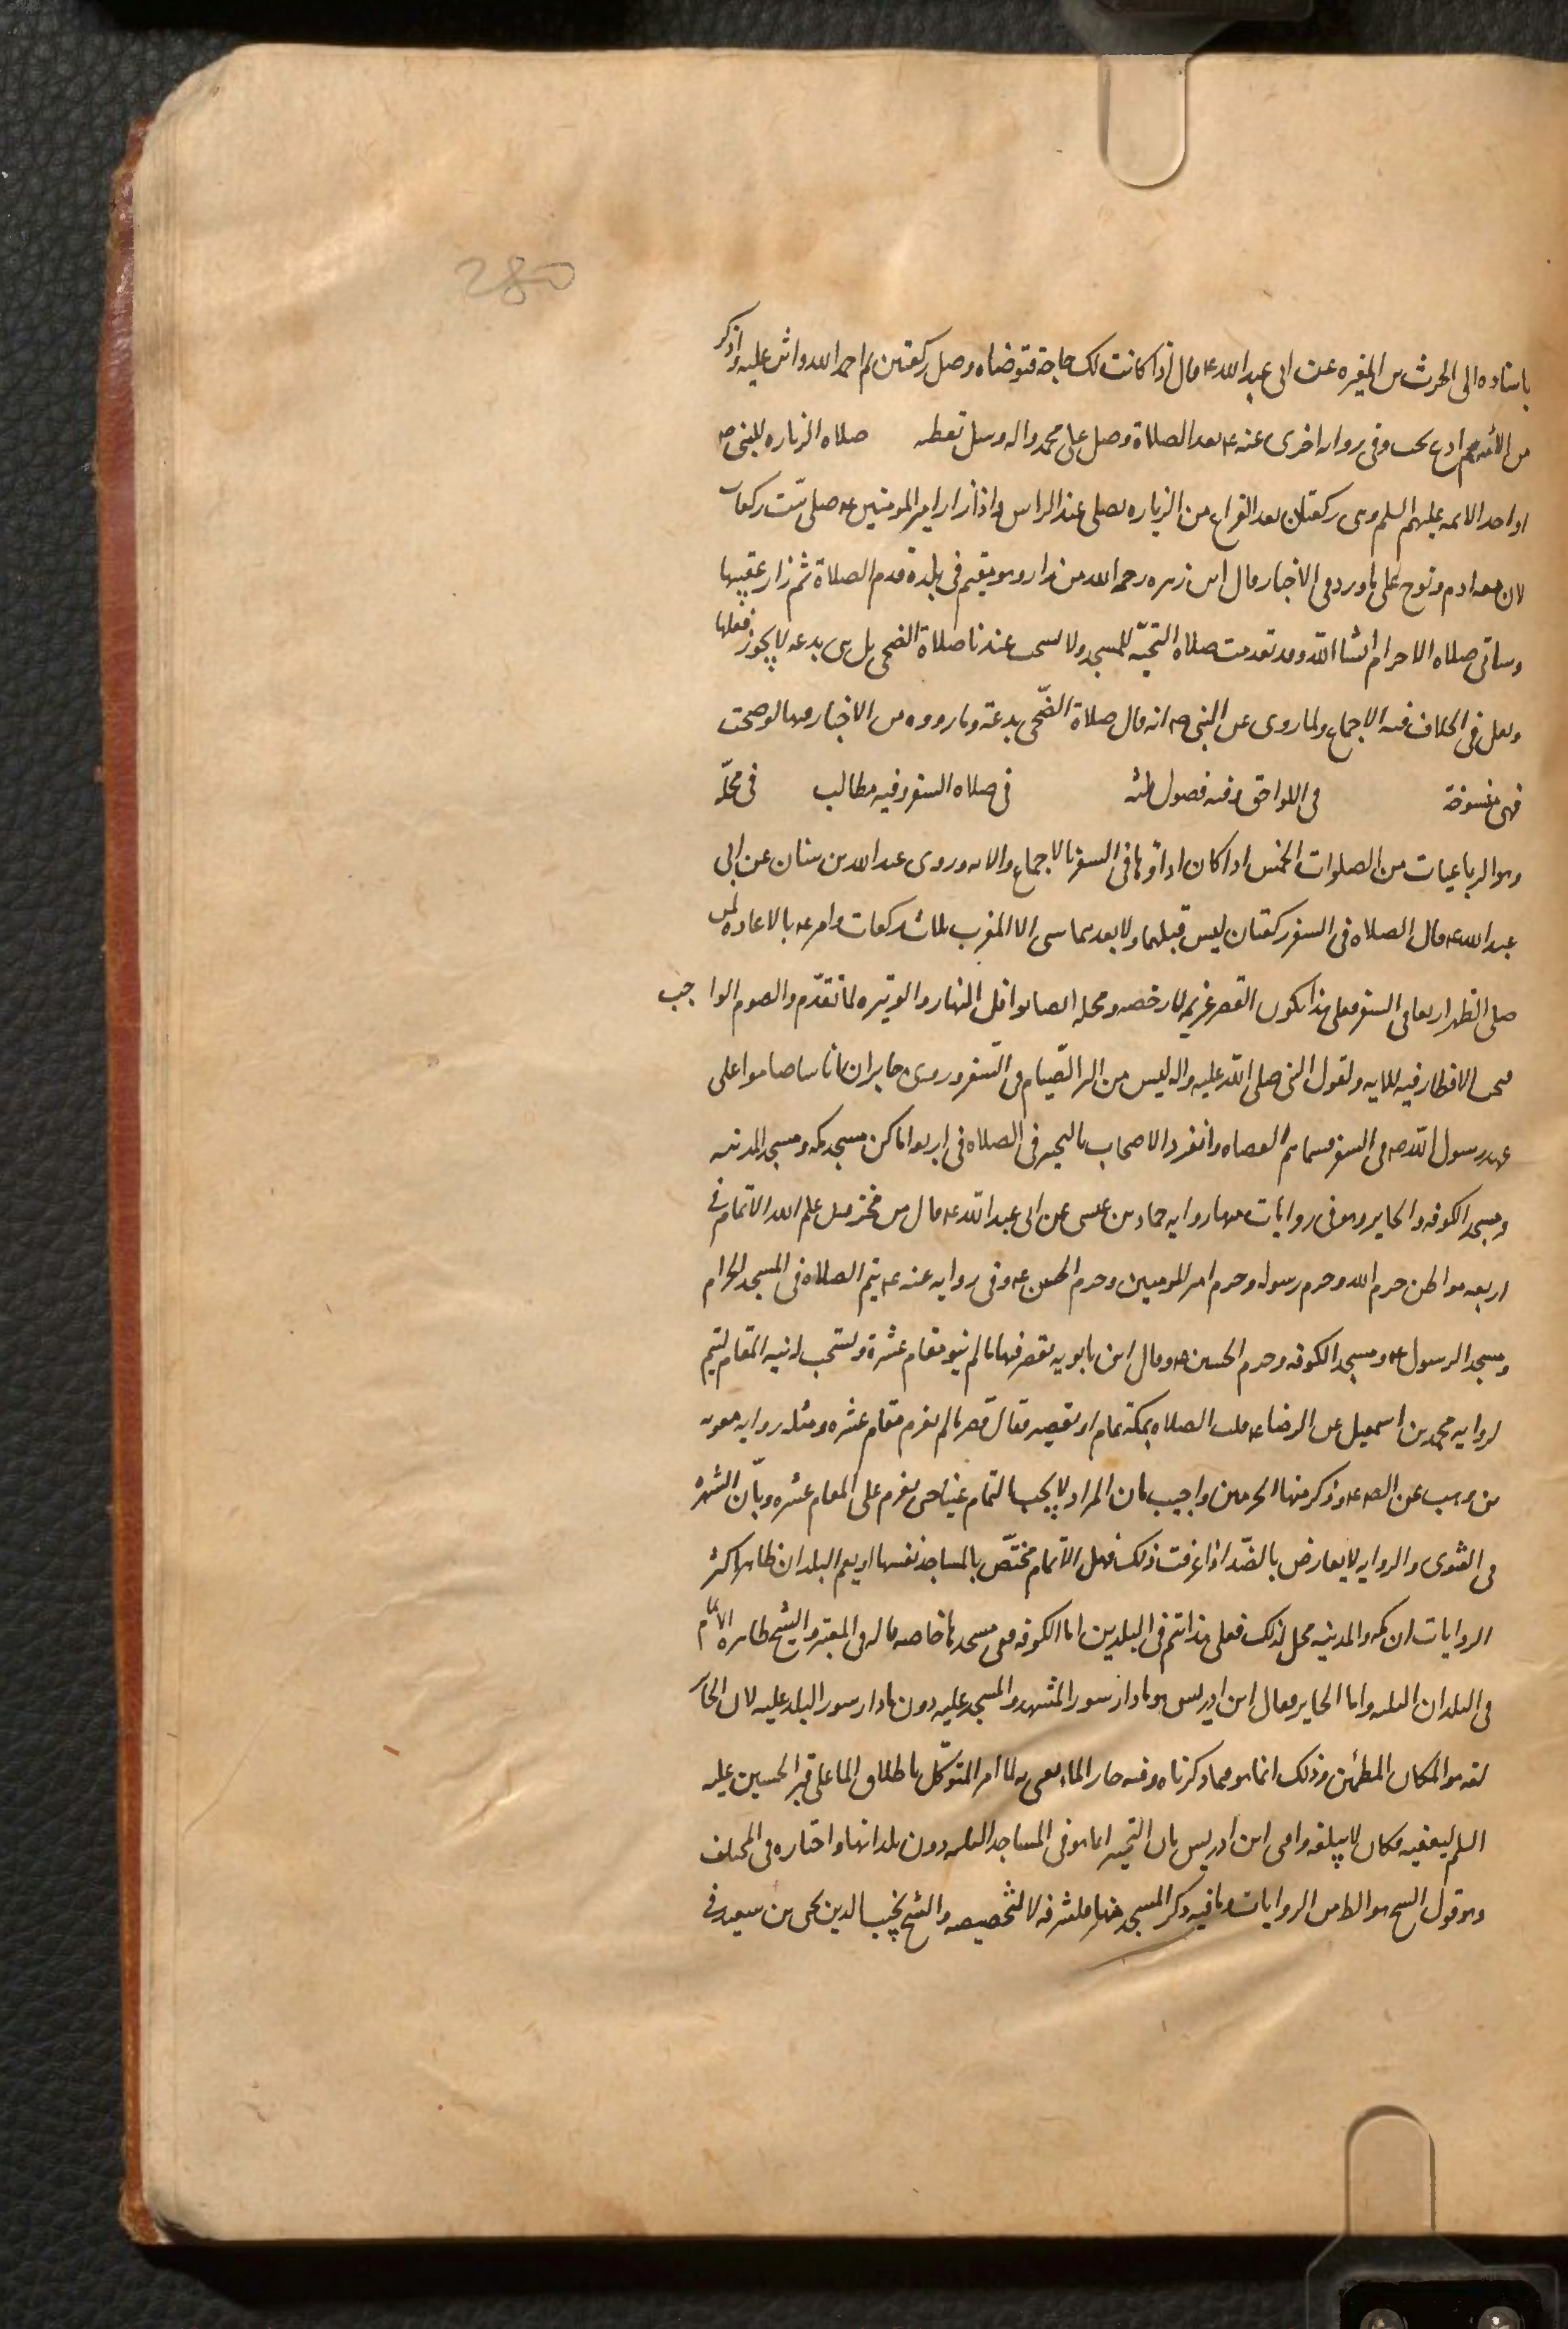 280
باسناده الى الحرث بن المغيره عن ابى عبد الله ع قال اذا كانت لك حاجة فتوضاه وصل ركعتين ثم احمد الله واثن عليه واذكر
من الائه ثم ادع تجب وفى روايه اخرى عنه ع بعد الصلاة وصل على محمد واله وسل تعطه صلاه الزياره للنبى ص
او احد الائمه عليهم السلم وهى ركعتان بعد الفراغ من الزياره يصلى عند الراس واذا زار امير المومنين ع صلى ست ركعات
لان معه ادم ونوح على ما ورد فى الاخبار وقال ابن زهره رحمه الله من زار وهو مقيم فى بلدة قدم الصلاة ثم زار عقيبها
وساتى صلاه الاحرام انشا الله وقد تقدمت صلاه التحيّه للمسجد ولا يستحب عندنا صلاة الضحى بل هى بدعه لا يجوز فعلها
ونقل فى الخلاف فيه الاجماع ولما روى عن النبى ص انه قال صلاة الضّحى بدعة وما رووه من الاخبار فيها لو صحت
فهى منسوخة فى اللواحق وفيه فصول ثلثه فى صلاه السفر وفيه مطالب فى محلّه
وهو الرباعيات من الصلوات الخمس اذا كان اداؤها فى السفر بالاجماع والايه وروى عبد الله بن سنان عن ابى
عبد الله ع قال الصلاه فى السفر ركعتان ليس قبلهما ولا بعدهما شى الا المغرب ثلاث ركعات وامر ع بالاعاده لمن
صلى الظهر اربعا فى السفر فعلى هذا يكون القصر عزيمه لا رخصه ومحله ايضا نوافل النهار والوتيره لما تقدّم والصوم الواجب
فيجب الافطار فيه للايه ولقول النبى صلى الله عليه واله ليس من البر الصّيام فى السّفر وروى جابر ان اناسا صاموا على
عهد رسول الله ص فى السفر فسماهم العصاه وانفرد الاصحاب بالتخيير فى الصلاه فى اربع اماكن مسجد مكه ومسجد المدينه
ومسجد الكوفه والحاير وهو فى روايات منها روايه حماد بن عيسى عن ابى عبد الله ع قال من مخزون علم الله الاتمام فى
اربعه مواطن حرم الله وحرم رسوله وحرم امير المومنين وحرم الحسين ع وفى روايه عنه ع يتم الصلاه فى المسجد الحرام
ومسجد الرسول ص ومسجد الكوفه وحرم الحسين ع وقال ابن بابويه يقصر فيها ما لم ينو مقام عشرة ويستحب له نيه المقام ليتم
لروايه محمد بن اسمعيل عن الرضا ع قلت الصلاه بمكة تمام او تقصير فقال قصر ما لم تعزم مقام عشره ومثله روايه معويه
بن وهب عن الص ع وذكر منها الحرمين واجيب بان المراد لا يجب التمام عينا حتى يعزم على المقام عشره وبأن الشهره
فى الفتوى والروايه لا يعارض بالضّد اذا عرفت ذلك فهل الاتمام مختصّ بالمساجد نفسها او يعم البلدان ظاهر اكثر
الروايات ان مكه والمدينه محل لذلك فعلى هذا اتم فى البلدين اما الكوفه ففى مسجدها خاصه قاله فى المعتبر والشيخ ظاهره الاتمام
فى البلدان الثلثه واما الحاير فقال ابن ادريس هو ما دار سور المشهد والمسجد عليه دون ما دار سور البلد عليه لان الحاير
لغه هو المكان المطمئن وذلك انما هو فيما ذكرناه وفيه حار الماء يعنى به لما امر المتوكّل باطلاق الما على قبر الحسين عليه
السلم ليعفيه فكان لا يبلغه وافتى ابن ادريس بان التخيير انما هو فى المساجد الثلثه دون بلدانها واختاره فى المختلف
وقول الشيخ هو الظ من الروايات وما فيه ذكر المسجد منها فلشرفه لا لتخصيصه والشيخ نجيب الدين يحيى بن سعيد فى